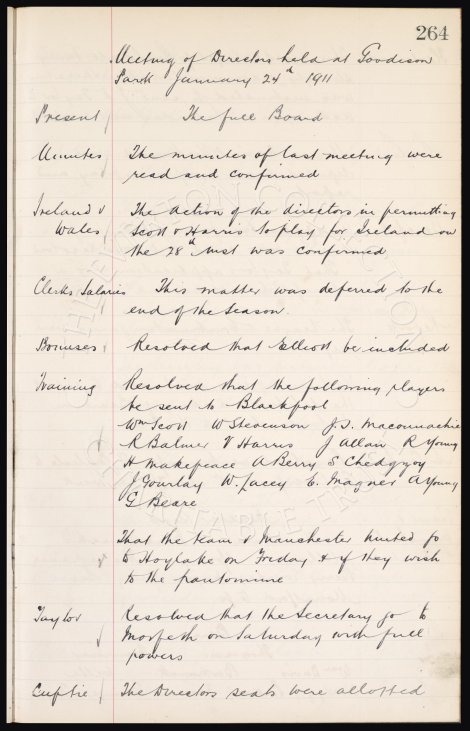 264
Meeting of Directors held at Goodison
Park January 24th 1911
Present The full Board
Minutes The minutes of last meeting were
read and confirmed
Ireland v The action of the directors in permitting
Wales Scott & Harris to play for Ireland on
the 28th inst was confirmed
Clerks Salaries This matter was deferred to the
end of the Season.
Bonuses Resolved that Elliott be included
Training Resolved that the following players
be sent to Blackpool
Wm Scott W Stevenson J.S. Maconnachie
R Balmer V Harris J Allan R Young
H Makepeace A Berry S Chedgzoy
J Gourlay W Lacey C. Magner A Young
G Beare
That the team v Manchester United go
to Hoylake on Friday & if they wish
to the pantomime
Taylor Resolved that the Secretary go to
Morpeth on Saturday with full
powers
Cup tie The Directors seats were allotted